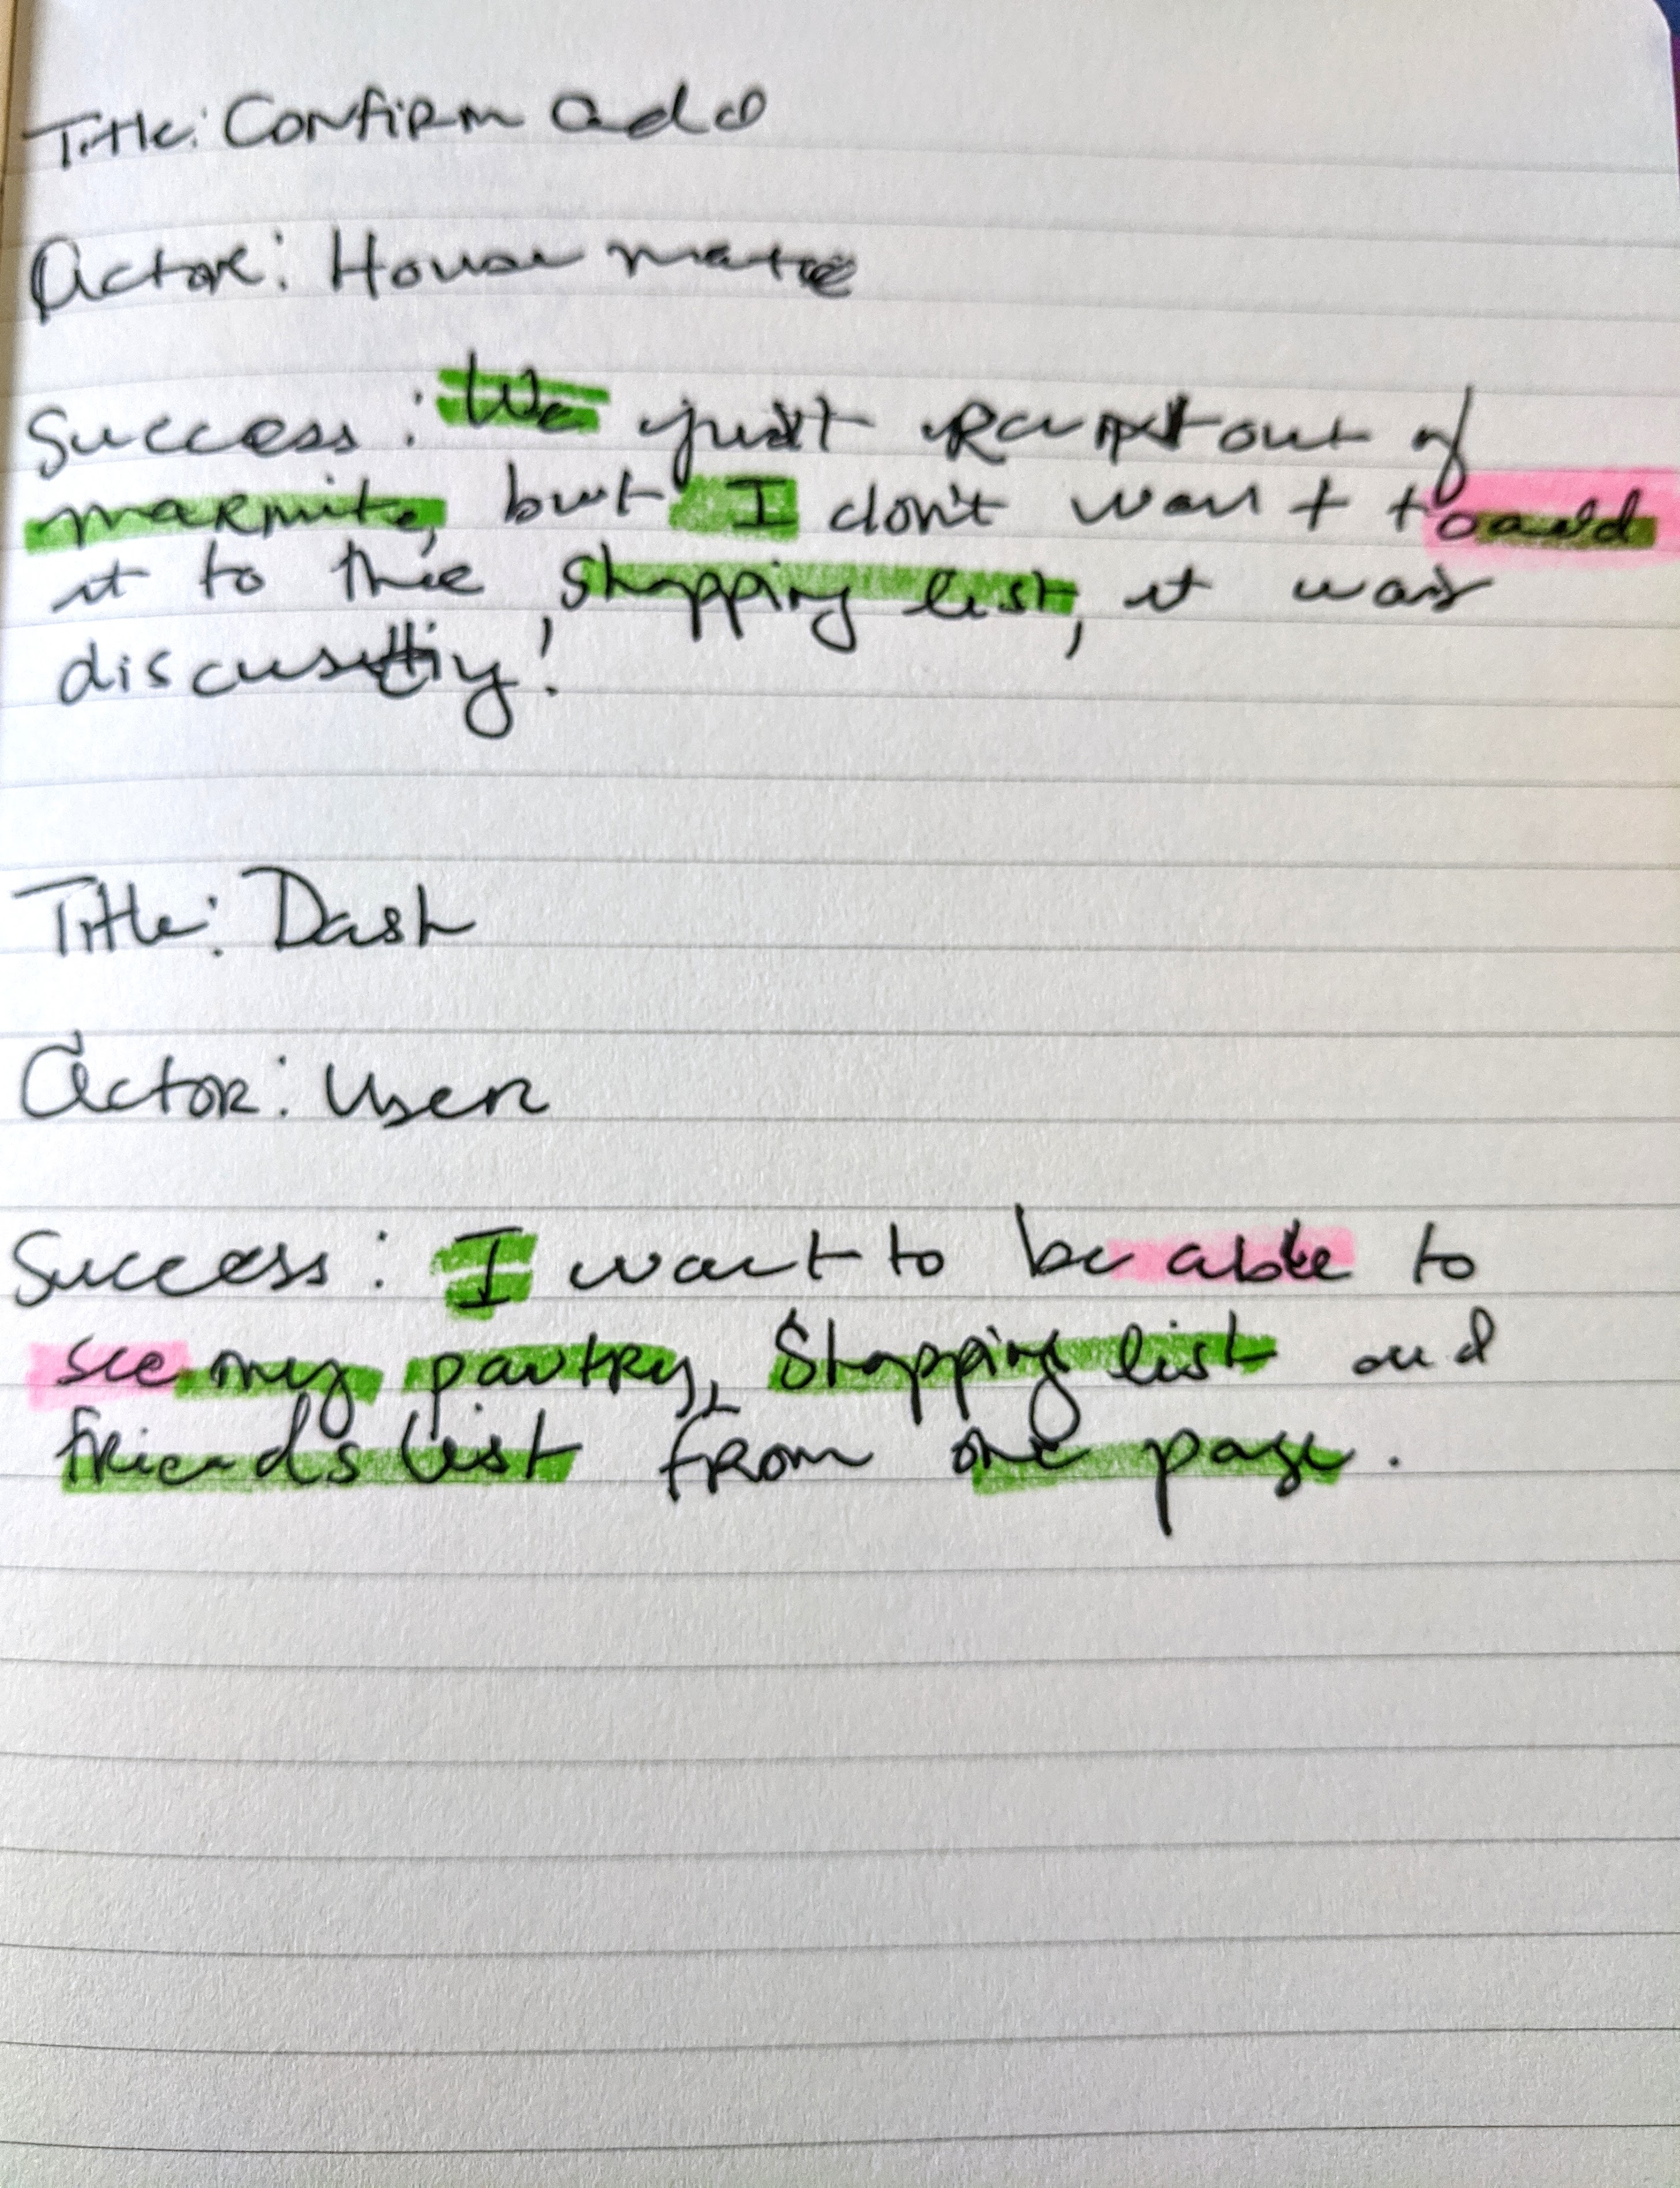 Title: Confirm add
Actor: House mate
Success: We just run out of
marmite, but I don't want to add
it to the shopping list, it was
discusttiy!
Title: Dash
Actor: User
Success: I want to be able to
see my pantry, Shopping list and
friends list from one page.